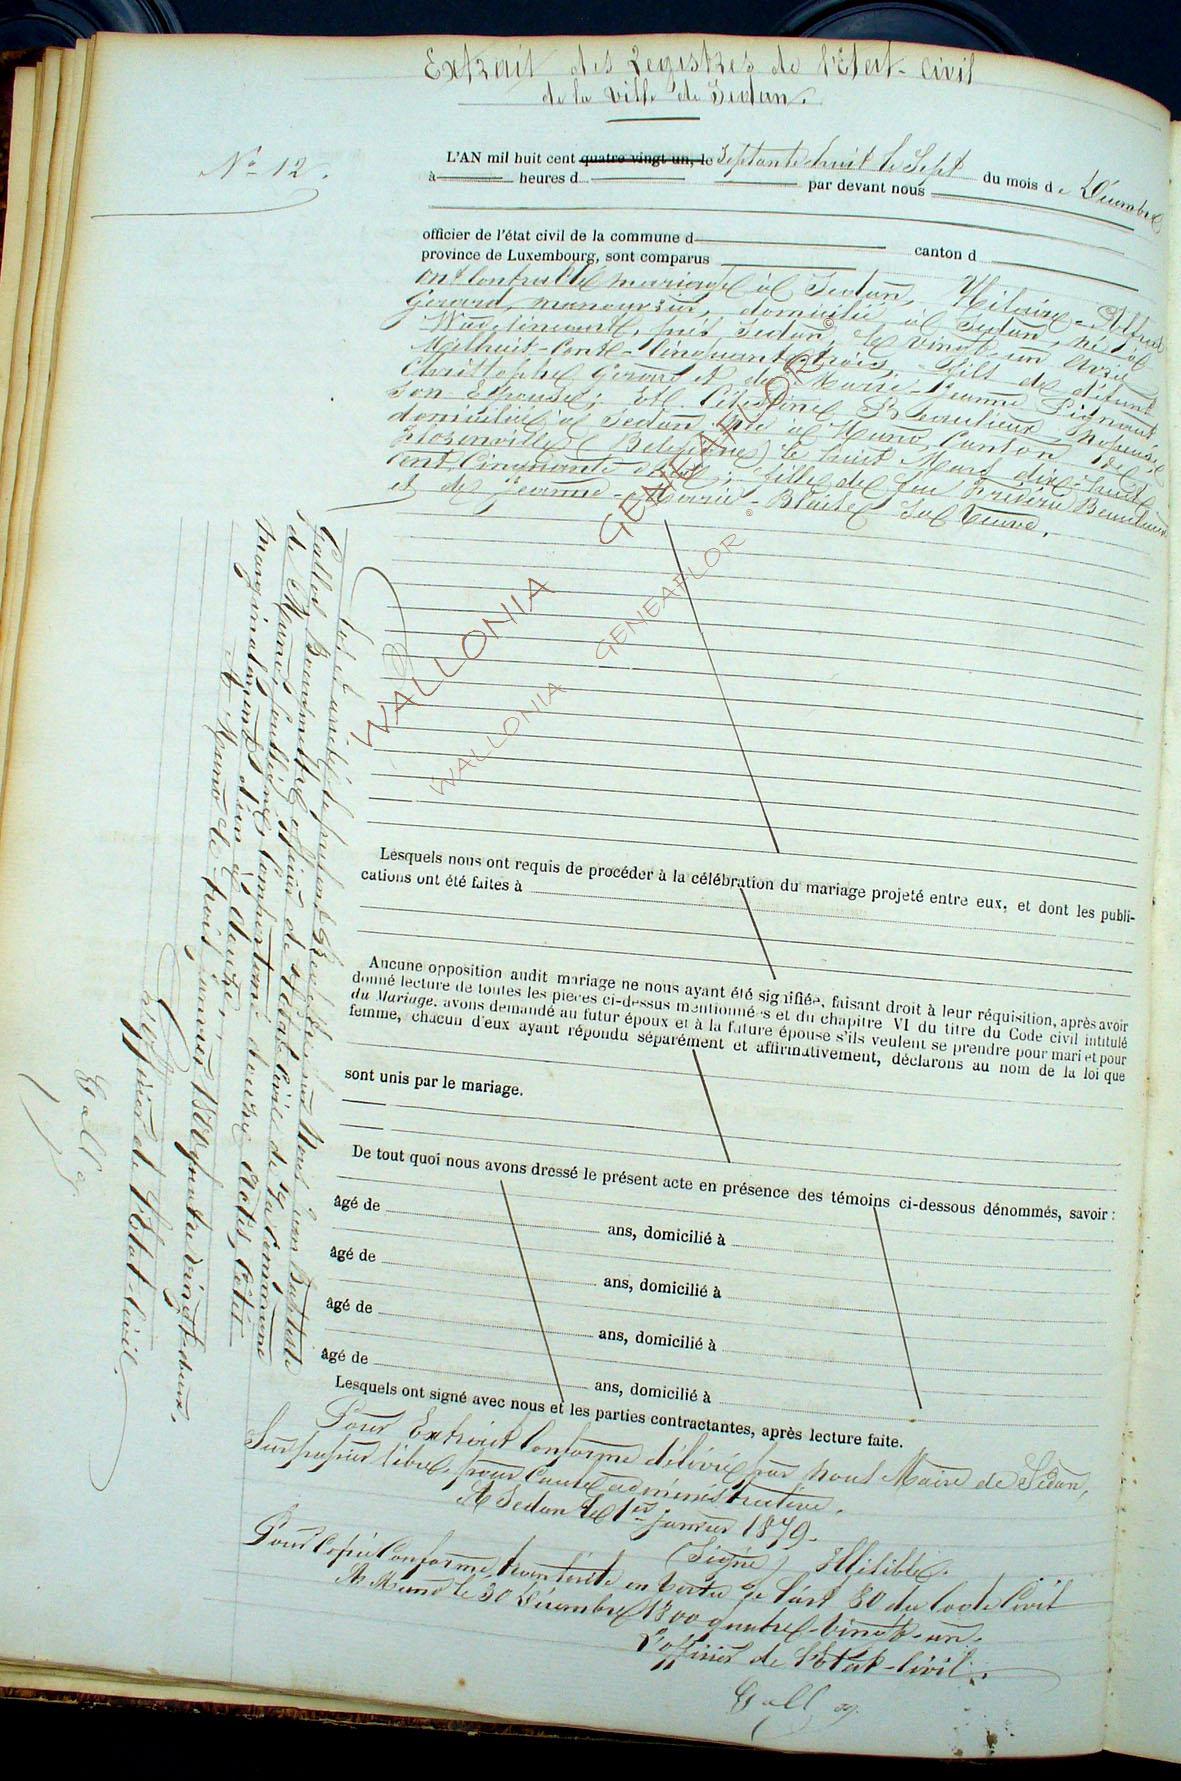 Extrait des Registres de l'Etat-Civil
de la Ville de Sedan.
N° 12.
L'AN mil huit cent quatre-vingt-un, le Septante huit le Sept du mois de Décembre
à heures d par devant nous
officier de l'état civil de la commune d canton d
province de Luxembourg, sont comparus
ont Contracté mariage à Sedan, Hilaire-Alfred
Gerard, manouvrier, domicilié à Sedan, né à
Wadelincourt, près Sedan, le vingt-un avril
Mil huit-Cent-Cinquante-trois, Fils de défunt
Christophe Gerard et de Marie-Jeanne
son Epouse; Et Célestine Beaulieux,
domiciliée à Sedan, née à Muno, Canton de
Florenville (Belgique) le huit Mars dix-huit
Cent Cinquante ; fille de feu Frédéric Beaulieux
et de Jeanne-Marie-Blaise sa Veuve.
WALLONIA GENEAFLOR ©
WALLONIA GENEAFLOR ©
Lesquels nous ont requis de procéder à la célébration du mariage projeté entre eux, et dont les publi-
cations ont été faites à
Aucune opposition audit mariage ne nous ayant été signifiée, faisant droit à leur réquisition, après avoir
donné lecture de toutes les pièces ci-dessus mentionnées et du chapitre VI du titre du Code civil intitulé
du Mariage, avons demandé au futur époux et à la future épouse s'ils veulent se prendre pour mari et pour
femme, chacun d'eux ayant répondu séparément et affirmativement, déclarons au nom de la loi que
sont unis par le mariage.
De tout quoi nous avons dressé le présent acte en présence des témoins ci-dessous dénommés, savoir :
âgé de ans, domicilié à
âgé de ans, domicilié à
âgé de ans, domicilié à
âgé de ans, domicilié à
Lesquels ont signé avec nous et les parties contractantes, après lecture faite.
Pour Extrait Conforme délivré par nous Maire de Sedan,
Sur papier libre, pour Cause administrative.
A Sedan le 1er janvier 1879.
(Signé) Illisible.
Pour Copie Conforme, transcrite en vertu de l'art 80 du Code Civil
A Muno le 30 Décembre 1800 quatre-vingt-un.
L'officier de l'Etat-Civil.
Galloy
Clos et arrêté le présent Registre par Nous Jean Baptiste
Galloy Bourgmestre officier de l'Etat Civil de la Commune
de Muno, soussigné, Contenant douze Actes, Cotés
Marginalement d'un à douze.
A Muno le trois janvier 1800 quatre vingt-deux.
L'officier de l'Etat-Civil.
Galloy